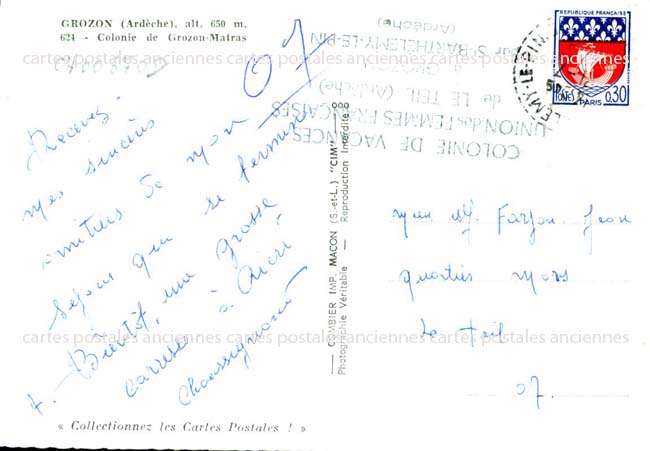 GROZON (Ardèche), alt. 650 m.
624 - Colonie de Grozon-Matras
07
Recevez
mes sincères
amitiés de mon
séjour qui se termine
A Bientôt, une grosse
caresse à
COLONIE DE VACANCES
UNION des FEMMES FRANÇAISES
de LE TEIL (Ardèche)
par St-BARTHÉLEMY-LE-PIN
(Ardèche)
EMY-LE-PIN
REPUBLIQUE FRANÇAISE
POSTES PARIS 0,30
COMBIER IMP. MACON (S.-et-L.) "CIM"
Photographie Véritable - Reproduction Interdite
Farjon Jean
quartier
Le Teil
07.
cartes postales anciennes cartes postales anciennes cartes postales anciennes cartes postales anciennes
« Collectionnez les Cartes Postales ! »